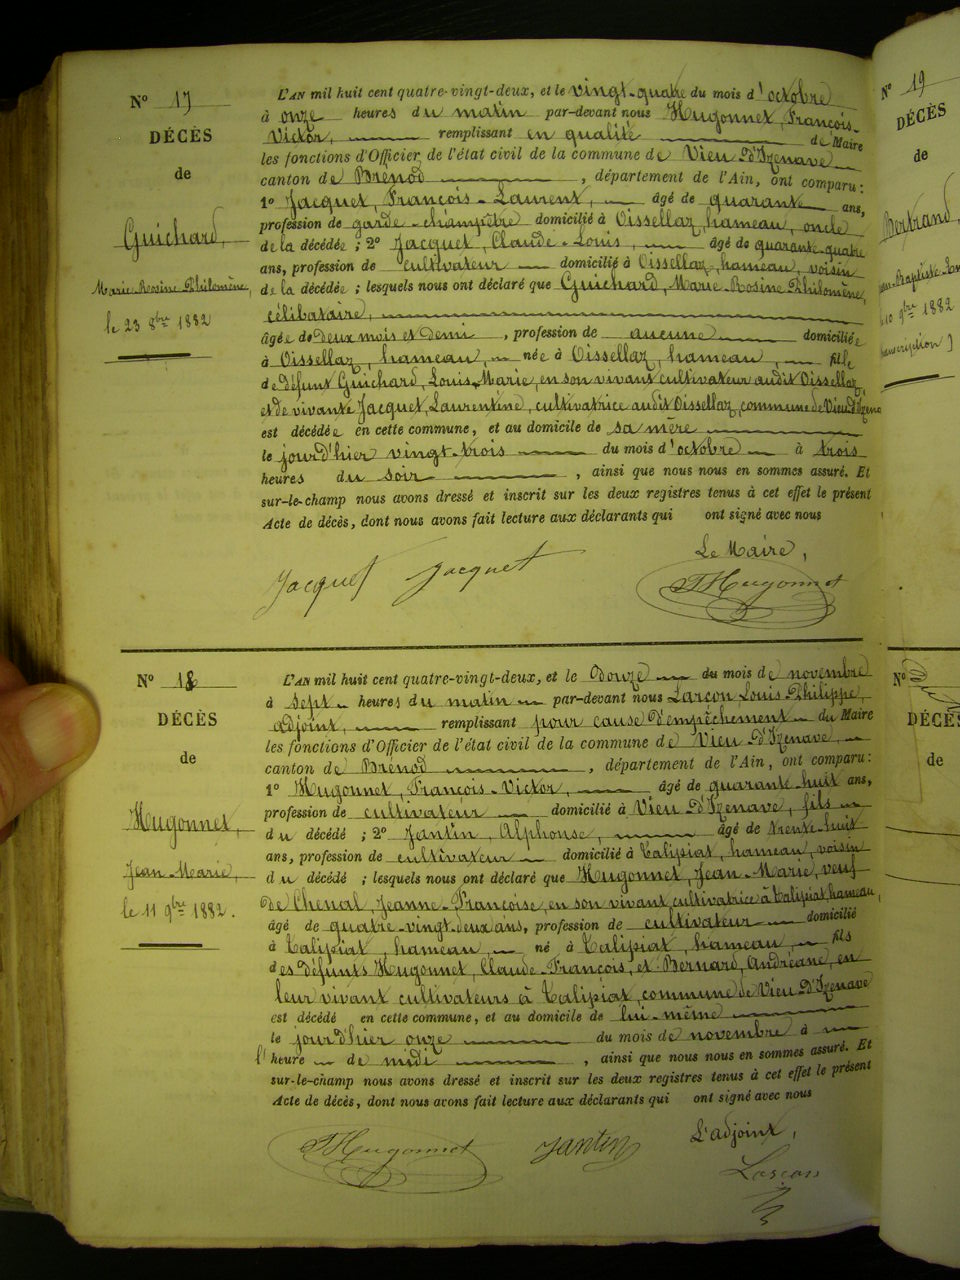 N° 17
DÉCÈS
de
Guichard,
Marie Rosine Philomène,
le 23 8bre 1882
L'AN mil huit cent quatre-vingt-deux, et le vingt-quatre du mois d'octobre
à onze heures du matin par-devant nous Hugonnet, François-
Victor, remplissant en qualité de Maire
les fonctions d'Officier de l'état civil de la commune de Vieu d'Izenave
canton de Brénod, département de l'Ain, ont comparu :
1° Jacquet, François-Laurent, âgé de quarante ans,
profession de garde-champêtre domicilié à Oissellaz, hameau, oncle
de la décédée ; 2° Jacquet, Claude-Louis, âgé de quarante-quatre
ans, profession de cultivateur domicilié à Oissellaz, hameau, voisin
de la décédée ; lesquels nous ont déclaré que Guichard, Marie Rosine Philomène,
célibataire,
âgée de deux mois et demi, profession de aucune domiciliée
à Oissellaz, hameau, née à Oissellaz, hameau, fille
de défunt Guichard, Louis-Marie, en son vivant cultivateur audit Oissellaz,
et de vivante Jacquet, Laurentine, cultivatrice audit Oissellaz, commune de Vieu d'Izenave
est décédée en cette commune, et au domicile de sa mère
le jourd'hier vingt-trois du mois d'octobre à trois
heures du soir, ainsi que nous nous en sommes assuré. Et
sur-le-champ nous avons dressé et inscrit sur les deux registres tenus à cet effet le présent
Acte de décès, dont nous avons fait lecture aux déclarants qui ont signé avec nous
Le Maire,
Jacquet Jacquet FHugonnet
N° 18
DÉCÈS
de
Hugonnet,
Jean-Marie,
le 11 9bre 1882.
L'AN mil huit cent quatre-vingt-deux, et le douze du mois de novembre
à sept heures du matin par-devant nous Larçon Louis Philippe,
adjoint, remplissant pour cause d'empêchement du Maire
les fonctions d'Officier de l'état civil de la commune de Vieu d'Izenave,
canton de Brénod, département de l'Ain, ont comparu :
1° Hugonnet, François-Victor, âgé de quarante huit ans,
profession de cultivateur domicilié à Vieu d'Izenave, fils
du décédé ; 2° Jantin, Alphonse, âgé de trente-huit
ans, profession de cultivateur domicilié à Talipiat, hameau, voisin
du décédé ; lesquels nous ont déclaré que Hugonnet, Jean-Marie, veuf
de Chenal, Jeanne-Françoise, en son vivant cultivatrice à Talipiat, hameau,
âgé de quatre-vingt-deux ans, profession de cultivateur domicilié
à Talipiat, hameau, né à Talipiat, hameau, fils
des défunts Hugonnet, Claude-François, et Bernard, Andréane, en
leur vivant cultivateurs à Talipiat, commune de Vieu d'Izenave
est décédé en cette commune, et au domicile de lui-même
le jourd'hier onze du mois de novembre à
l'heure de midi, ainsi que nous nous en sommes assuré. Et
sur-le-champ nous avons dressé et inscrit sur les deux registres tenus à cet effet le présent
Acte de décès, dont nous avons fait lecture aux déclarants qui ont signé avec nous
L'adjoint,
FHugonnet Jantin Larçon
N° 19
DÉCÈS
de
Bertrand,
Baptiste
10 9bre 1882
transcription
N°
DÉCÈS
de